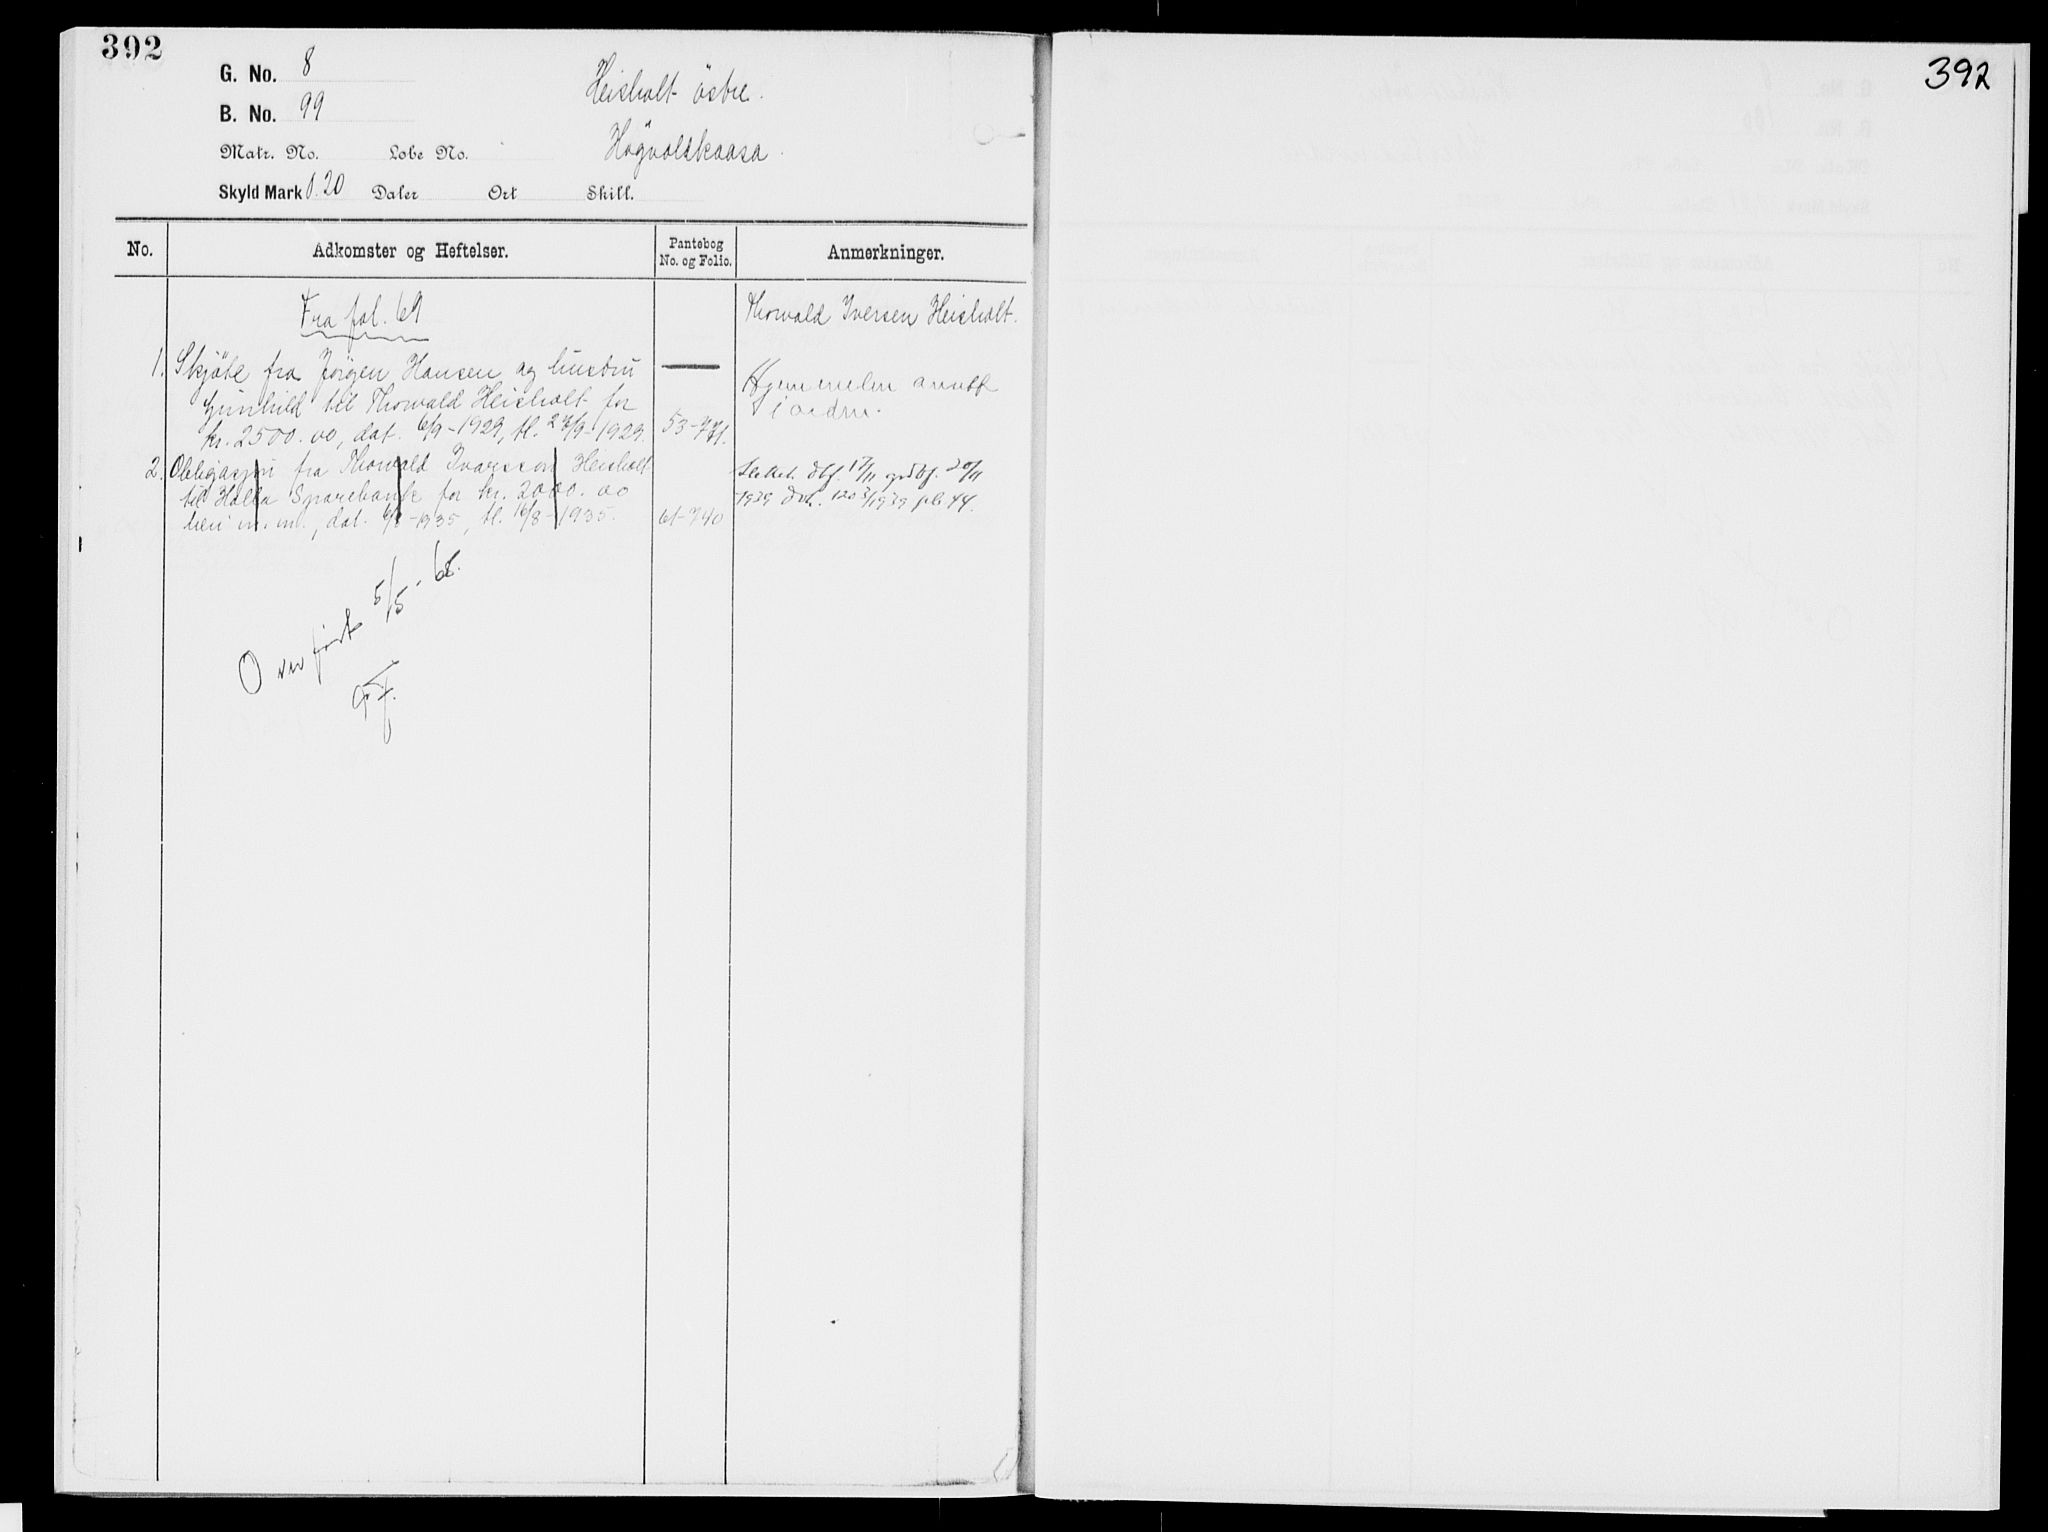 392
G. No. 8
Heisholt östre.
B. No. 99
Matr. No. Løbe No.
Högvoldskaasa.
Skyld Mark 0.20 Daler Ort Skill.
No. Adkomster og Heftelser. Pantebog No. og Folio. Anmerkninger.
Fra fol. 69
Thorvald Iversen Heisholt.
1. Skjöte fra Jörgen Hansen og hustru
Gunhild til Thorvald Heisholt for
kr. 2500.00, dat. 6/9-1929, tl. 27/9-1929. 53-771.
Hjemmelen
i orden.
2. Obligasjon fra Thorvald Ivarsson Heisholt
til Holla Sparebank for kr. 2000.00
m.m., dat. 6/8-1935, tl. 16/8-1935. 61-740
Slettet dbf. 17/11 20/11
1939 1203/1939 44.
Overført 5/5-68.
392